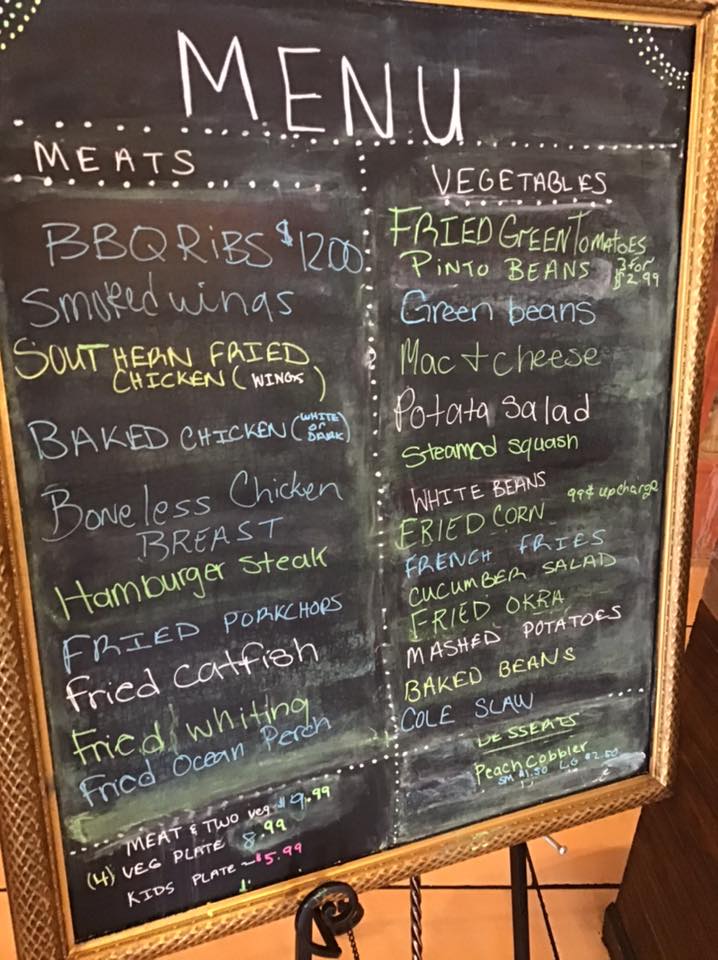 MENU
MEATS
BBQ RiBS $1200
Smoked wings
SOUTHERN FRIED
CHICKEN (WINGS)
BAKED CHICKEN (WHITE or DARK)
Boneless Chicken
BREAST
Hamburger Steak
FRIED PORKCHOPS
Fried Catfish
Fried Whiting
Fried Ocean Perch
MEAT & TWO Veg $9.99
(4) VEG PLATE 8.99
KIDS PLATE ~ $5.99
VEGETABLES
FRIED GREEN TOMATOES
PINTO BEANS 3 for $2.99
Green beans
Mac + cheese
Potata Salad
Steamed squash
WHITE BEANS
FRIED CORN 99¢ upcharge
FRENCH FRIES
CUCUMBER SALAD
FRIED OKRA
MASHED POTATOES
BAKED BEANS
COLE SLAW
DESSERTS
Peach Cobbler
SM $1.50 LG $2.50